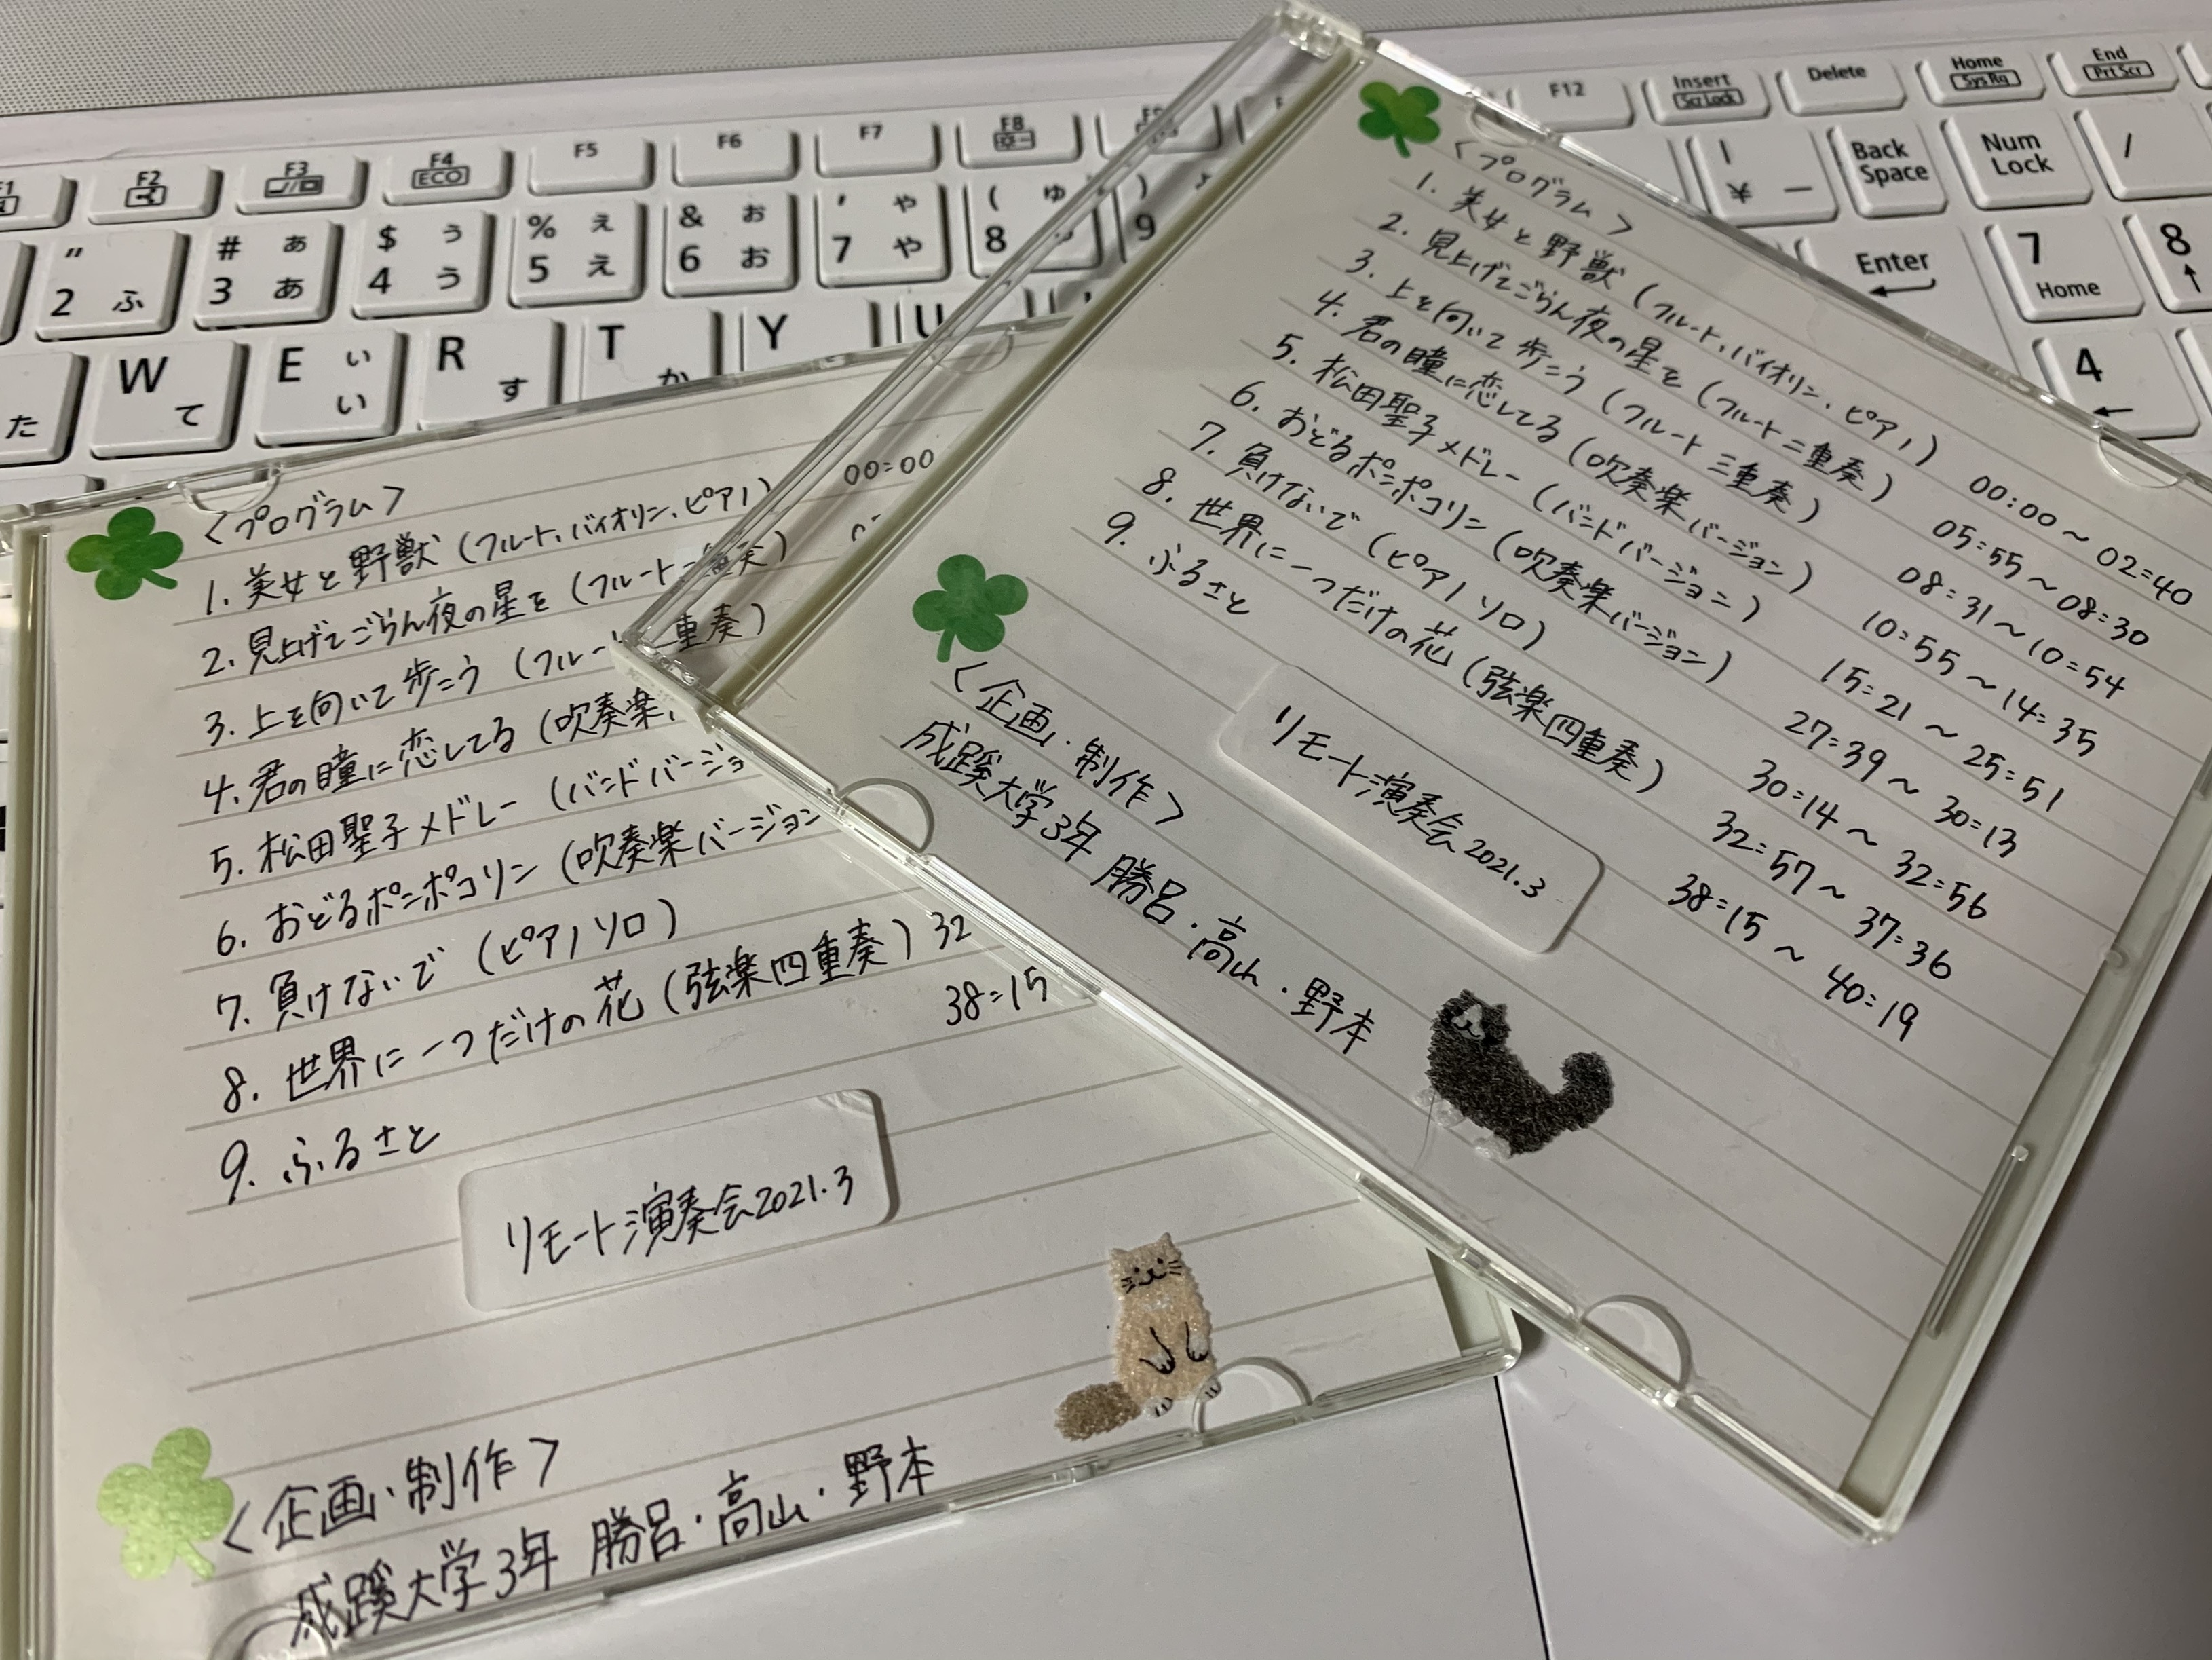 F2
F3
F4
ECO
F5
F6
F7
F8
F12
Insert
Scr Lock
Delete
Home
Sys Rq
End
Prt Scr
" 2 ふ
# あ 3 あ
$ う 4 う
% え 5 え
& お 6 お
' や 7 や
( ゆ 8
) 9
¥ ー
Back Space
Num Lock
/
た
W て
E い い
R す
T か
Y
U
Enter
7 Home
8 ↑
4 ←
<プログラム>
1. 美女と野獣 (フルート、バイオリン、ピアノ) 00:00
2. 見上げてごらん夜の星を (フルート二重奏)
3. 上を向いて歩こう (フルー 重奏)
4. 君の瞳に恋してる (吹奏楽
5. 松田聖子メドレー (バンドバージョ
6. おどるポンポコリン (吹奏楽バージョン
7. 負けないで (ピアノソロ)
8. 世界に一つだけの花 (弦楽四重奏) 32
9. ふるさと 38:15
リモート演奏会2021.3
<企画・制作>
成蹊大学3年 勝呂・高山・野本
<プログラム>
1. 美女と野獣 (フルート、バイオリン、ピアノ) 00:00〜02:40
2. 見上げてごらん夜の星を (フルート二重奏) 05:55〜08:30
3. 上を向いて歩こう (フルート三重奏) 08:31〜10:54
4. 君の瞳に恋してる (吹奏楽バージョン) 10:55〜14:35
5. 松田聖子メドレー (バンドバージョン) 15:21〜25:51
6. おどるポンポコリン (吹奏楽バージョン) 27:39〜30:13
7. 負けないで (ピアノソロ) 30:14〜32:56
8. 世界に一つだけの花 (弦楽四重奏) 32:57〜37:36
9. ふるさと 38:15〜40:19
<企画・制作>
成蹊大学3年 勝呂・高山・野本
リモート演奏会2021.3